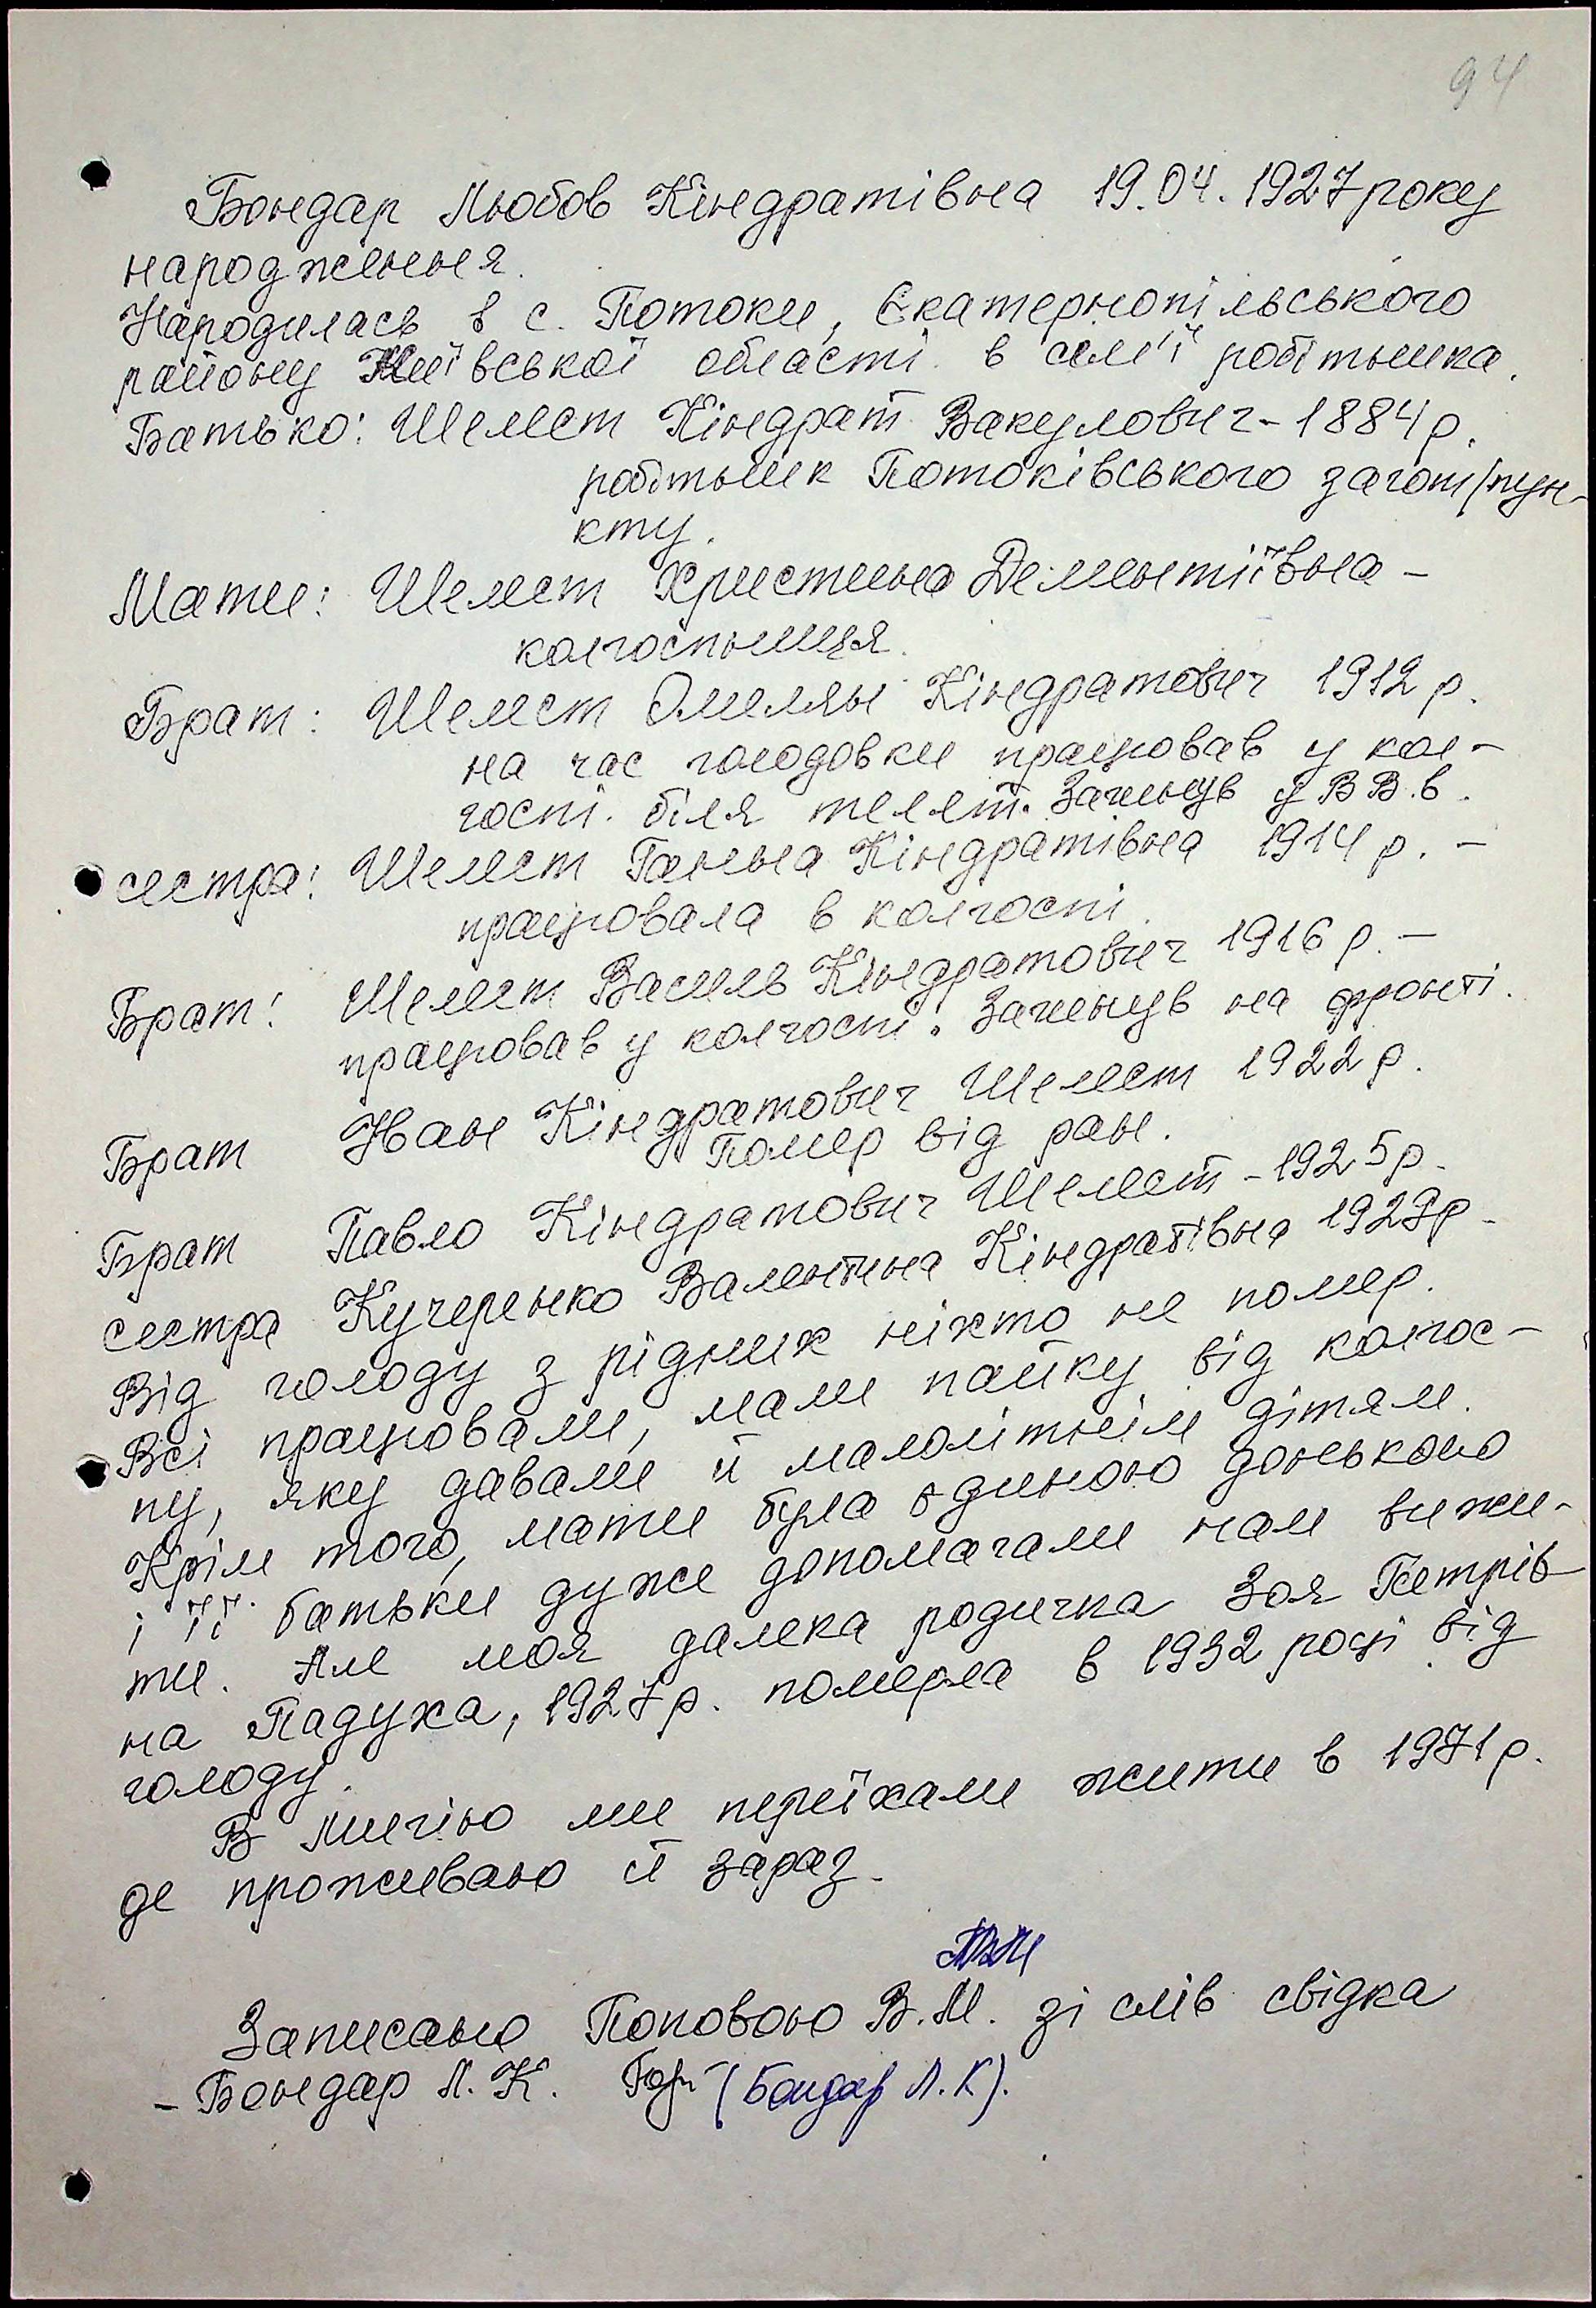 94
Бондар Любов Кіндратівна 19.04.1927 року
народження.
Народилась в с. Потоки, Єкатернопільського
району Київської області в сім'ї робітника.
Батько: Шелест Кіндрат Вакулович - 1884 р.
робітник Потоківського загот/пун-
кту.
Мати: Шелест Христина Дементіївна -
колгоспниця.
Брат: Шелест Омелян Кіндратович 1912 р.
на час голодовки працював у кол-
госпі біля телят. Загинув у ВВ.в.
сестра: Шелест Ганна Кіндратівна 1914 р. -
працювала в колгоспі.
Брат: Шелест Василь Кіндратович 1916 р. -
працював у колгоспі. Загинув на фронті.
Брат Іван Кіндратович Шелест 1922 р.
Помер від ран.
Брат Павло Кіндратович Шелест - 1925 р.
сестра Кучеренко Валентина Кіндратівна 1929 р.
Від голоду з рідних ніхто не помер.
Всі працювали, мали пайку від колгос-
пу, яку давали й малолітнім дітям.
Крім того, мати була єдиною донькою
і її батьки дуже допомагали нам вижи-
ти. Але моя далека родичка Зоя Петрів
на Падуха, 1927 р. померла в 1932 році від
голоду.
В Мигію ми переїхали жити в 1971 р.
де проживаю й зараз.
Записано Поповою В.М. зі слів свідка
- Бондар Л.К. (Бондар Л.К).